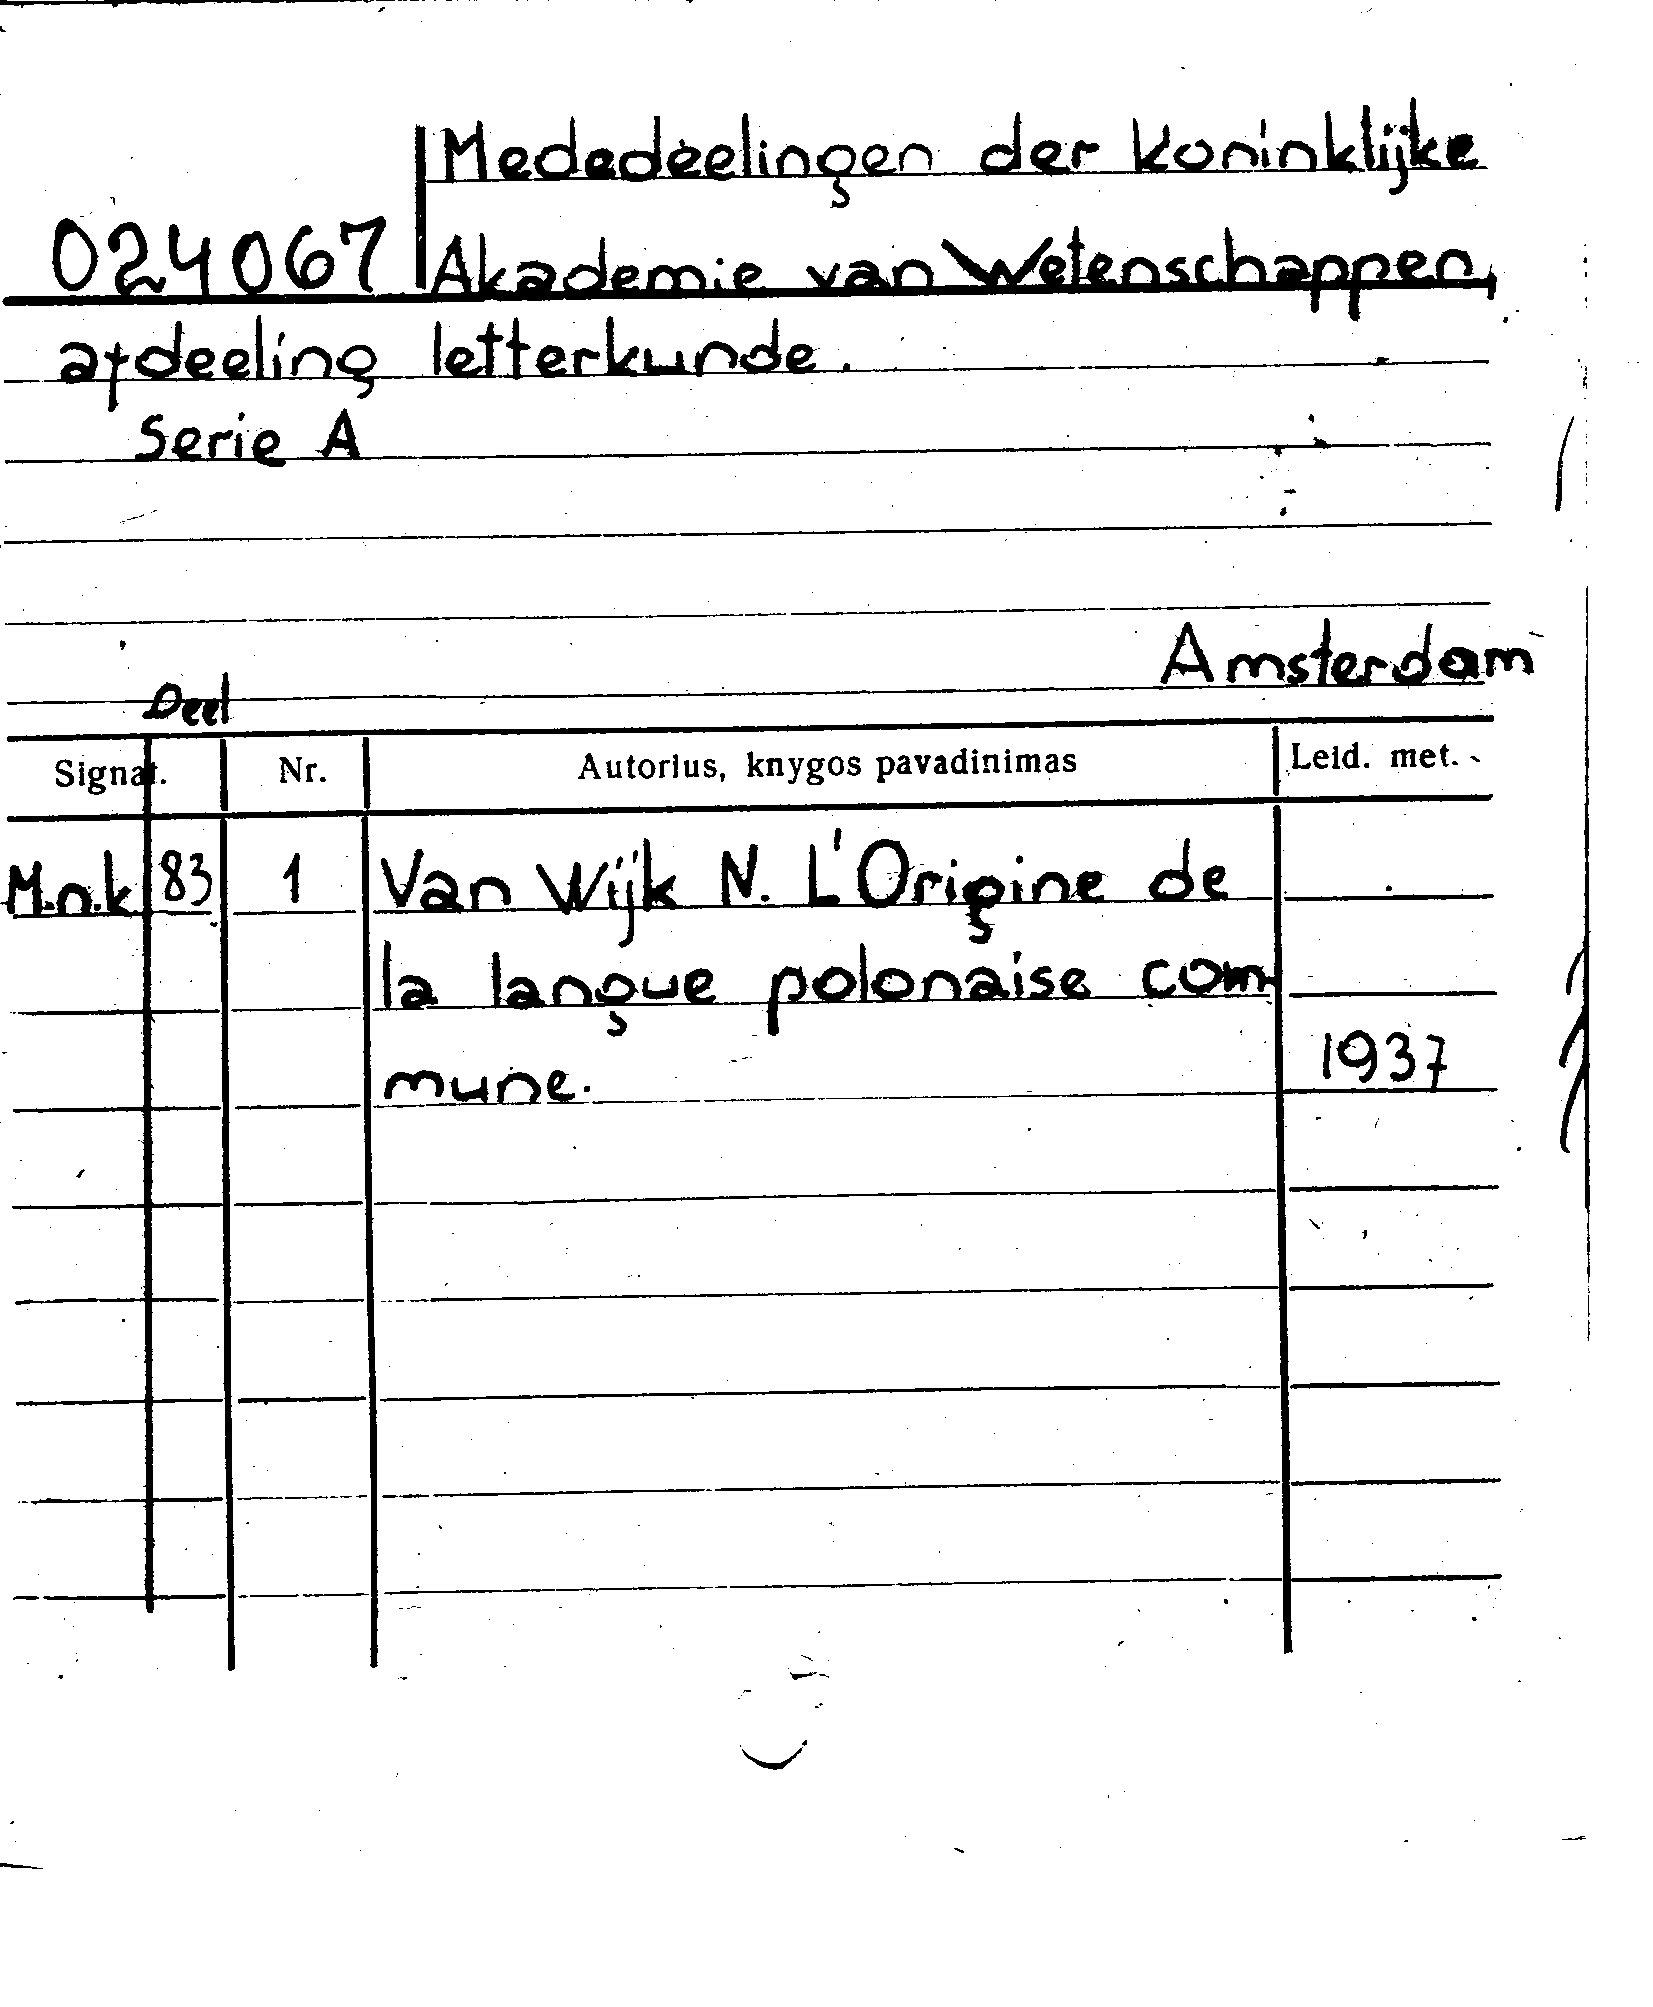 Mededeelingen der koninklijke
024067 Akademie van Wetenschappen,
afdeeling letterkunde.
Serie A
Amsterdam
Deel
Signat. Nr. Autorius, knygos pavadinimas Leid. met.
M.n.k 83 1 Van Wijk N. L'Origine de
la langue polonaise com
mune. 1937